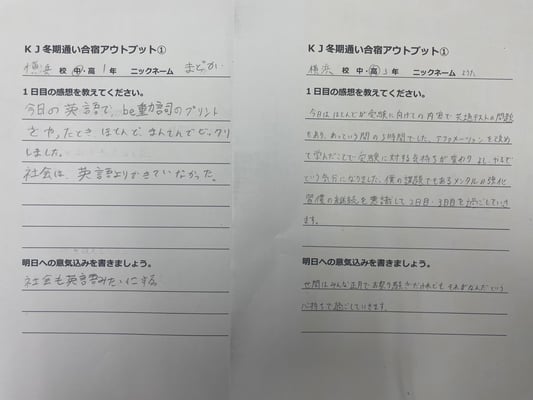 KJ冬期通い合宿アウトプット①
横浜 校 中・高 1年 ニックネーム まどか
1日目の感想を教えてください。
今日の英語で、be動詞のプリント
をやったとき、ほとんどまんてんでビックリ
しました。
社会は、英語よりできていなかった。
明日への意気込みを書きましょう。
社会も英語みたいにする。
KJ冬期通い合宿アウトプット①
横浜 校 中・高 3年 ニックネーム
1日目の感想を教えてください。
今日はほとんどが受験に向けての内容で共通テストの問題
もあり、あっという間の5時間でした。アファメーションを決め
て学んだことで受験に対する気持ちが変わり、よし、やるぞ
という気分になりました。僕の課題でもあるメンタルの強化
習慣の継続を意識して2日目・3日目を過ごしていき
ます。
明日への意気込みを書きましょう。
世間はみんな正月でお祭り騒ぎだけれども、それがなんだという
心持ちで過ごしていきます。